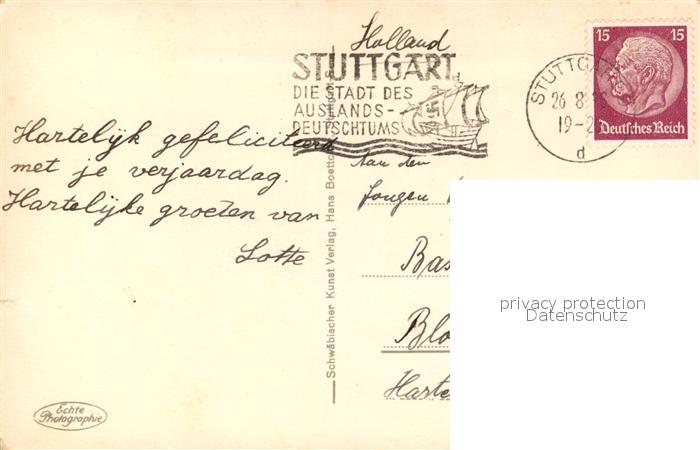 Holland
STUTTGART
DIE STADT DES
AUSLANDS-
DEUTSCHTUMS
STUTTG
26 8
19-2
d
15 15
Deutsches Reich
Hartelijk gefeliciteerd
met je verjaardag.
Hartelijke groeten van
Lotte
Aan den
Jongen
Bas
Blo
Harte
Schwäbischer Kunst Verlag, Hans Boettc
Echte
Photographie
privacy protection
Datenschutz